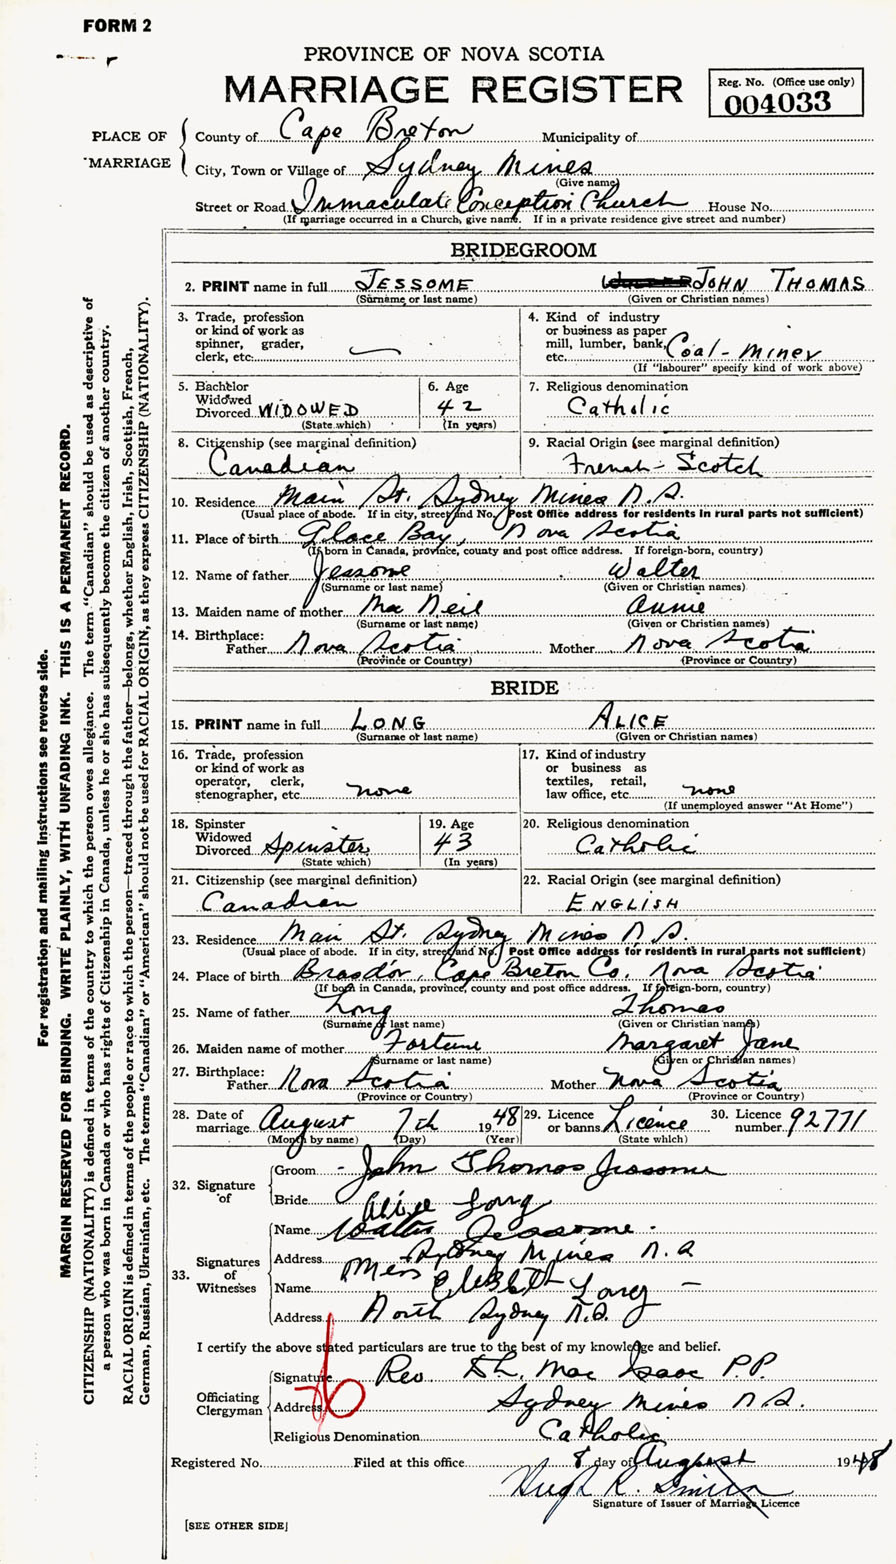 FORM 2
PROVINCE OF NOVA SCOTIA
MARRIAGE REGISTER
Reg. No. (Office use only)
004033
PLACE OF MARRIAGE
County of Cape Breton Municipality of
City, Town or Village of Sydney Mines
(Give name)
Street or Road Immaculate Conception Church House No.
(If marriage occurred in a Church, give name. If in a private residence give street and number)
BRIDEGROOM
2. PRINT name in full JESSOME JOHN THOMAS
(Surname or last name) (Given or Christian names)
3. Trade, profession
or kind of work as
spinner, grader,
clerk, etc.
4. Kind of industry
or business as paper
mill, lumber, bank,
etc. Coal-Miner
(If "labourer" specify kind of work above)
5. Bachelor
Widowed
Divorced WIDOWED
(State which)
6. Age
42
(In years)
7. Religious denomination
Catholic
8. Citizenship (see marginal definition)
Canadian
9. Racial Origin (see marginal definition)
French-Scotch
10. Residence Main St. Sydney Mines N.S.
(Usual place of abode. If in city, street and No. Post Office address for residents in rural parts not sufficient)
11. Place of birth Glace Bay, Nova Scotia
(If born in Canada, province, county and post office address. If foreign-born, country)
12. Name of father Jessome Walter
(Surname or last name) (Given or Christian names)
13. Maiden name of mother Mac Neil Annie
(Surname or last name) (Given or Christian names)
14. Birthplace:
Father Nova Scotia Mother Nova Scotia
(Province or Country) (Province or Country)
BRIDE
15. PRINT name in full LONG ALICE
(Surname or last name) (Given or Christian names)
16. Trade, profession
or kind of work as
operator, clerk,
stenographer, etc. none
17. Kind of industry
or business as
textiles, retail,
law office, etc. none
(If unemployed answer "At Home")
18. Spinster
Widowed
Divorced Spinster
(State which)
19. Age
43
(In years)
20. Religious denomination
Catholic
21. Citizenship (see marginal definition)
Canadian
22. Racial Origin (see marginal definition)
ENGLISH
23. Residence Main St. Sydney Mines N.S.
(Usual place of abode. If in city, street and No. Post Office address for residents in rural parts not sufficient)
24. Place of birth Brasdor, Cape Breton Co. Nova Scotia
(If born in Canada, province, county and post office address. If foreign-born, country)
25. Name of father Long Thomas
(Surname or last name) (Given or Christian names)
26. Maiden name of mother Fortune Margaret Jane
(Surname or last name) (Given or Christian names)
27. Birthplace:
Father Nova Scotia Mother Nova Scotia
(Province or Country) (Province or Country)
28. Date of
marriage August 7th 1948
(Month by name) (Day) (Year)
29. Licence
or banns Licence
(State which)
30. Licence
number 92771
32. Signature of
Groom - John Thomas Jessome
Bride Alice Long
33. Signatures of Witnesses
Name Walter Jessome.
Address Sydney Mines N.S
Name Mrs Elizabeth Long -
Address North Sydney N.S.
I certify the above stated particulars are true to the best of my knowledge and belief.
Officiating Clergyman
Signature Rev Mac Isaac P.P.
Address Sydney Mines N.S.
Religious Denomination Catholic
76
Registered No. Filed at this office 8 day of August 1948
Hugh R. Smith
Signature of Issuer of Marriage Licence
[SEE OTHER SIDE]
For registration and mailing instructions see reverse side.
MARGIN RESERVED FOR BINDING. WRITE PLAINLY, WITH UNFADING INK. THIS IS A PERMANENT RECORD.
CITIZENSHIP (NATIONALITY) is defined in terms of the country to which the person owes allegiance. The term "Canadian" should be used as descriptive of
a person who was born in Canada or who has rights of Citizenship in Canada, unless he or she has subsequently become the citizen of another country.
RACIAL ORIGIN is defined in terms of the people or race to which the person—traced through the father—belongs, whether English, Irish, Scottish, French,
German, Russian, Ukrainian, etc. The terms "Canadian" or "American" should not be used for RACIAL ORIGIN, as they express CITIZENSHIP (NATIONALITY).